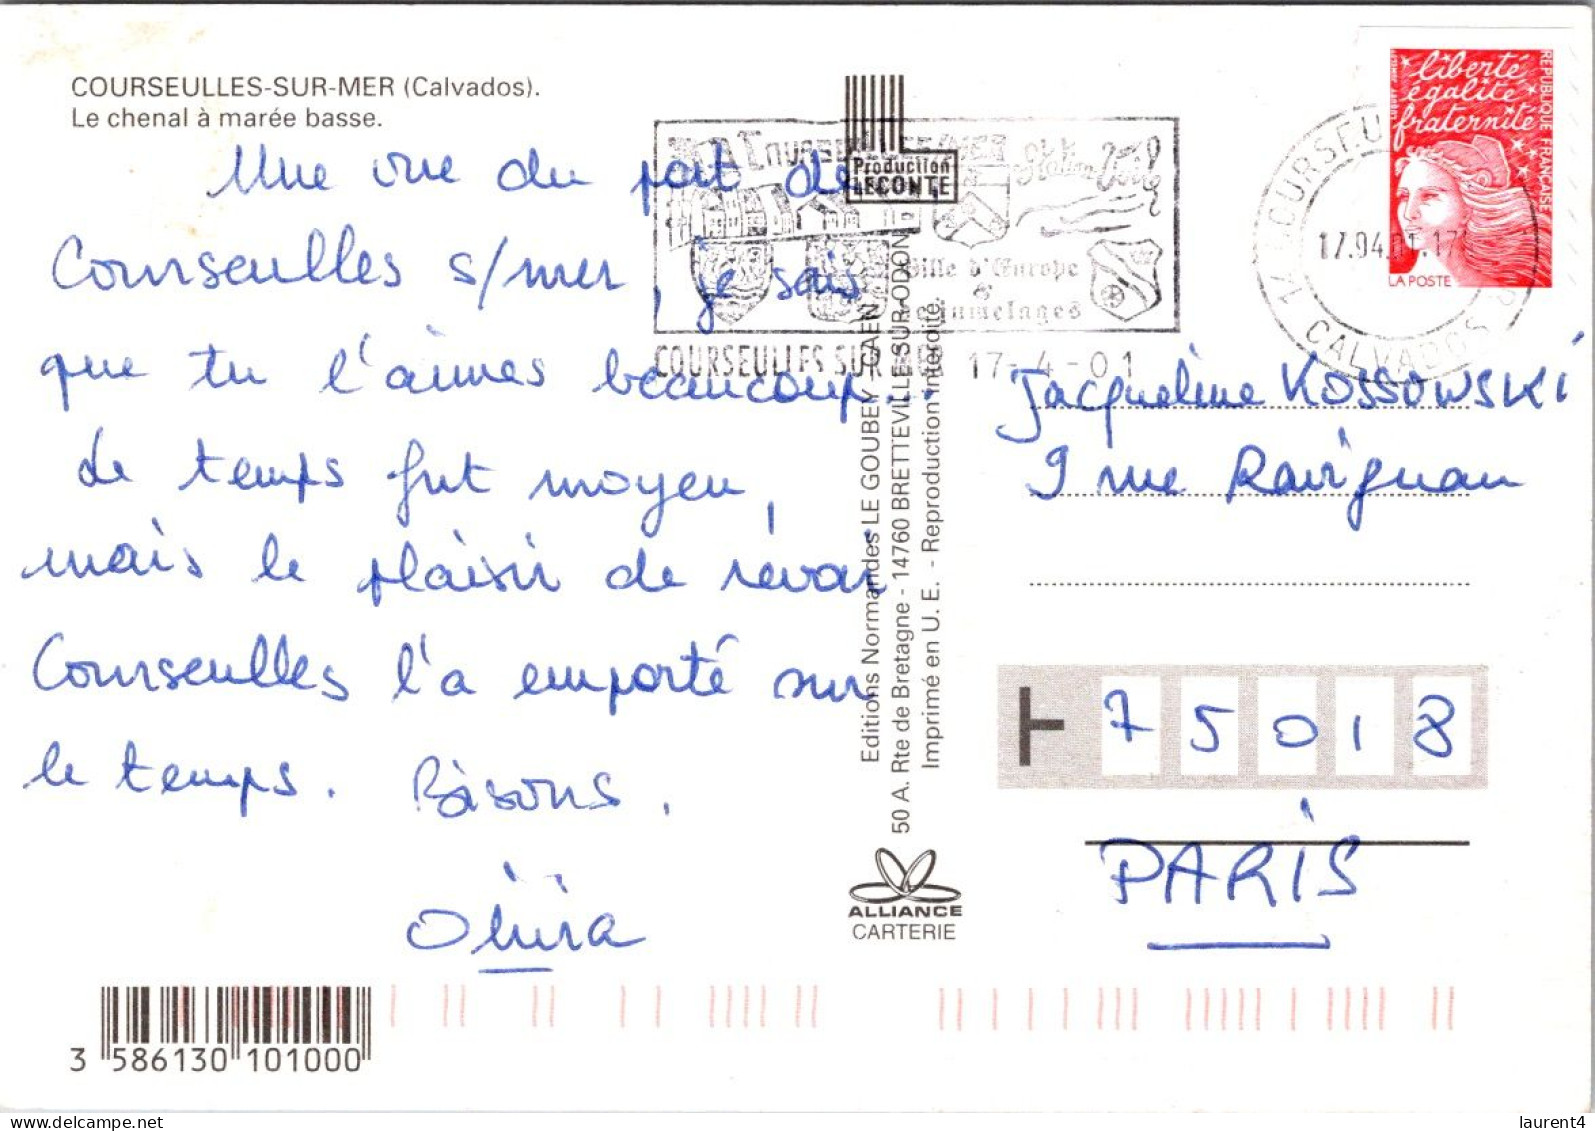 COURSEULLES-SUR-MER (Calvados).
Le chenal à marée basse.
Une vue du port de
Courseulles s/mer, je sais
que tu l'aimes beaucoup...
Le temps fut moyen,
mais le plaisir de revoir
Courseulles l'a emporté sur
le temps. Bisous.
3 586130 101000
Production
LECONTE
Station Voile
Ville d'Europe
&
Jumelages
COURSEULLES SUR MER 17-4-01
Editions Normandes LE GOUBEY - CAEN
50 A. Rte de Bretagne - 14760 BRETTEVILLE-SUR-ODON
Imprimé en U. E. - Reproduction interdite.
ALLIANCE
CARTERIE
liberté
égalité
fraternité
REPUBLIQUE FRANÇAISE
LA POSTE
14 COURSEU
17.04.01.17
CALVADOS
Jacqueline KOSSOWSKI
9 rue Ravignan
75018
PARIS
laurent4